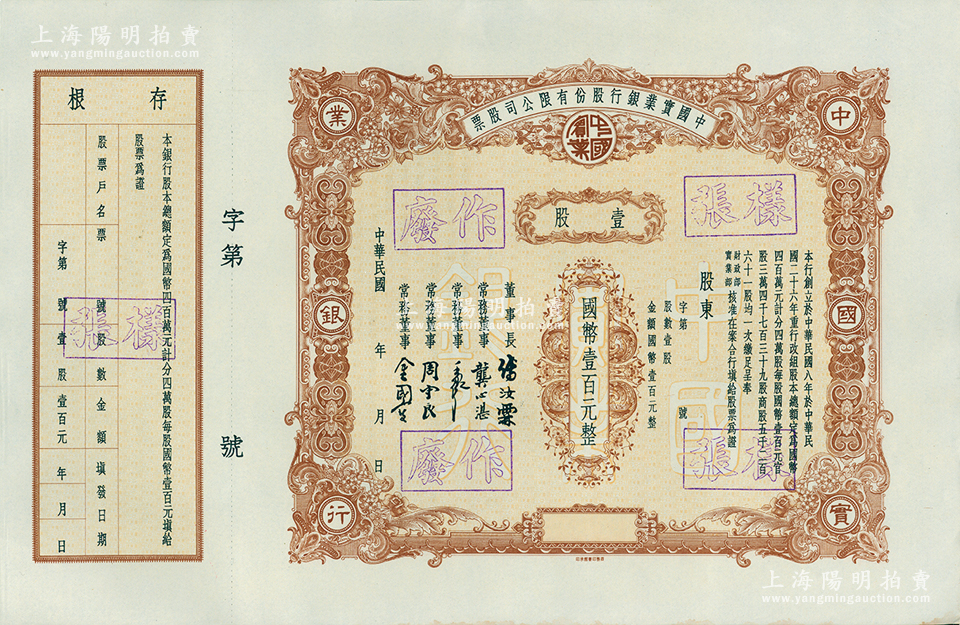 上海陽明拍賣
www.yangmingauction.com
中國實業銀行股份有限公司股票
中國實業
中
國
實
業
銀
行
壹股
樣張
作廢
本行創立於中華民國八年於中華民
國二十六年重行改組股本總額定爲國幣
四百萬元計分四萬股每股國幣壹百元官
股三萬四千七百三十九股商股五千二百
六十一股均一次繳足呈奉
財政部
實業部
核准在案合行塡給股票爲證
股東
字第 號
股數壹股
金額國幣壹百元整
國幣壹百元整
董事長 傅汝霖
常務董事 龔心湛
常務董事
常務董事 周
常務董事 金國
中華民國 年 月 日
樣張
作廢
字第 號
存根
本銀行股本總額定爲國幣四百萬元計分四萬股每股國幣壹百元塡給
股票爲證
股票戶名 票號 股數 金額 塡發日期
字第 號 壹股 壹百元 年 月 日
樣張
上海陽明拍賣
www.yangmingauction.com